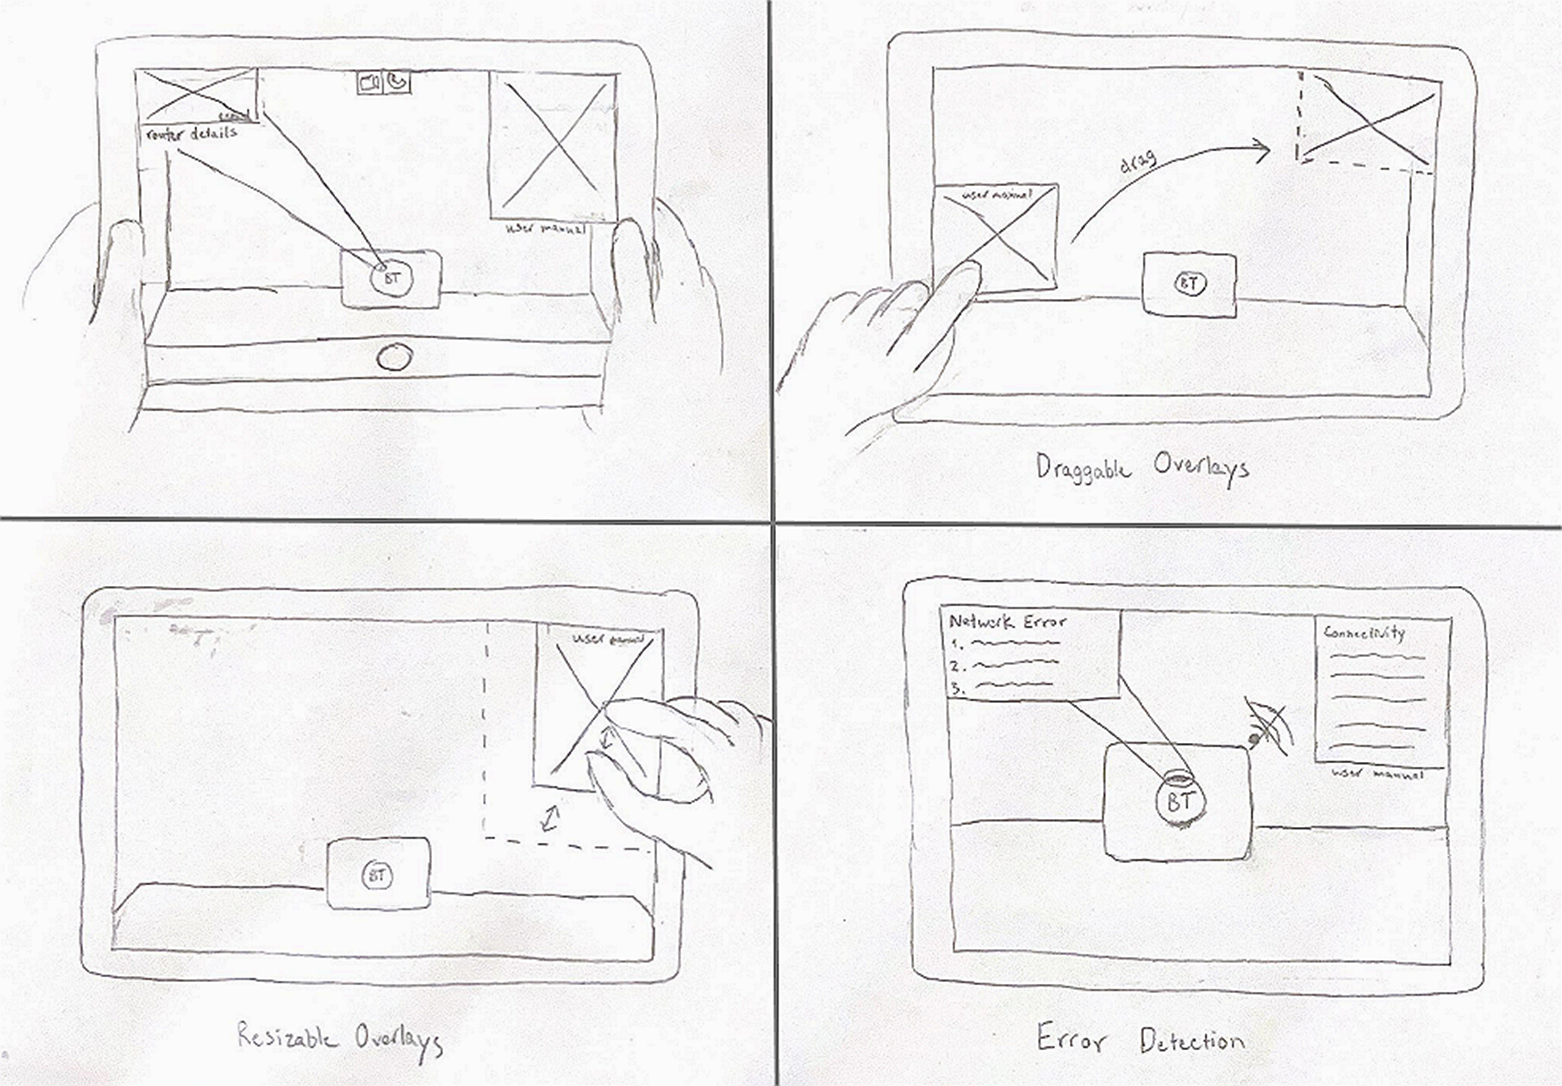 router details
user manual
BT
user manual
drag
BT
Draggable Overlays
user manual
BT
Resizable Overlays
Network Error
1.
2.
3.
Connectivity
user manual
BT
Error Detection